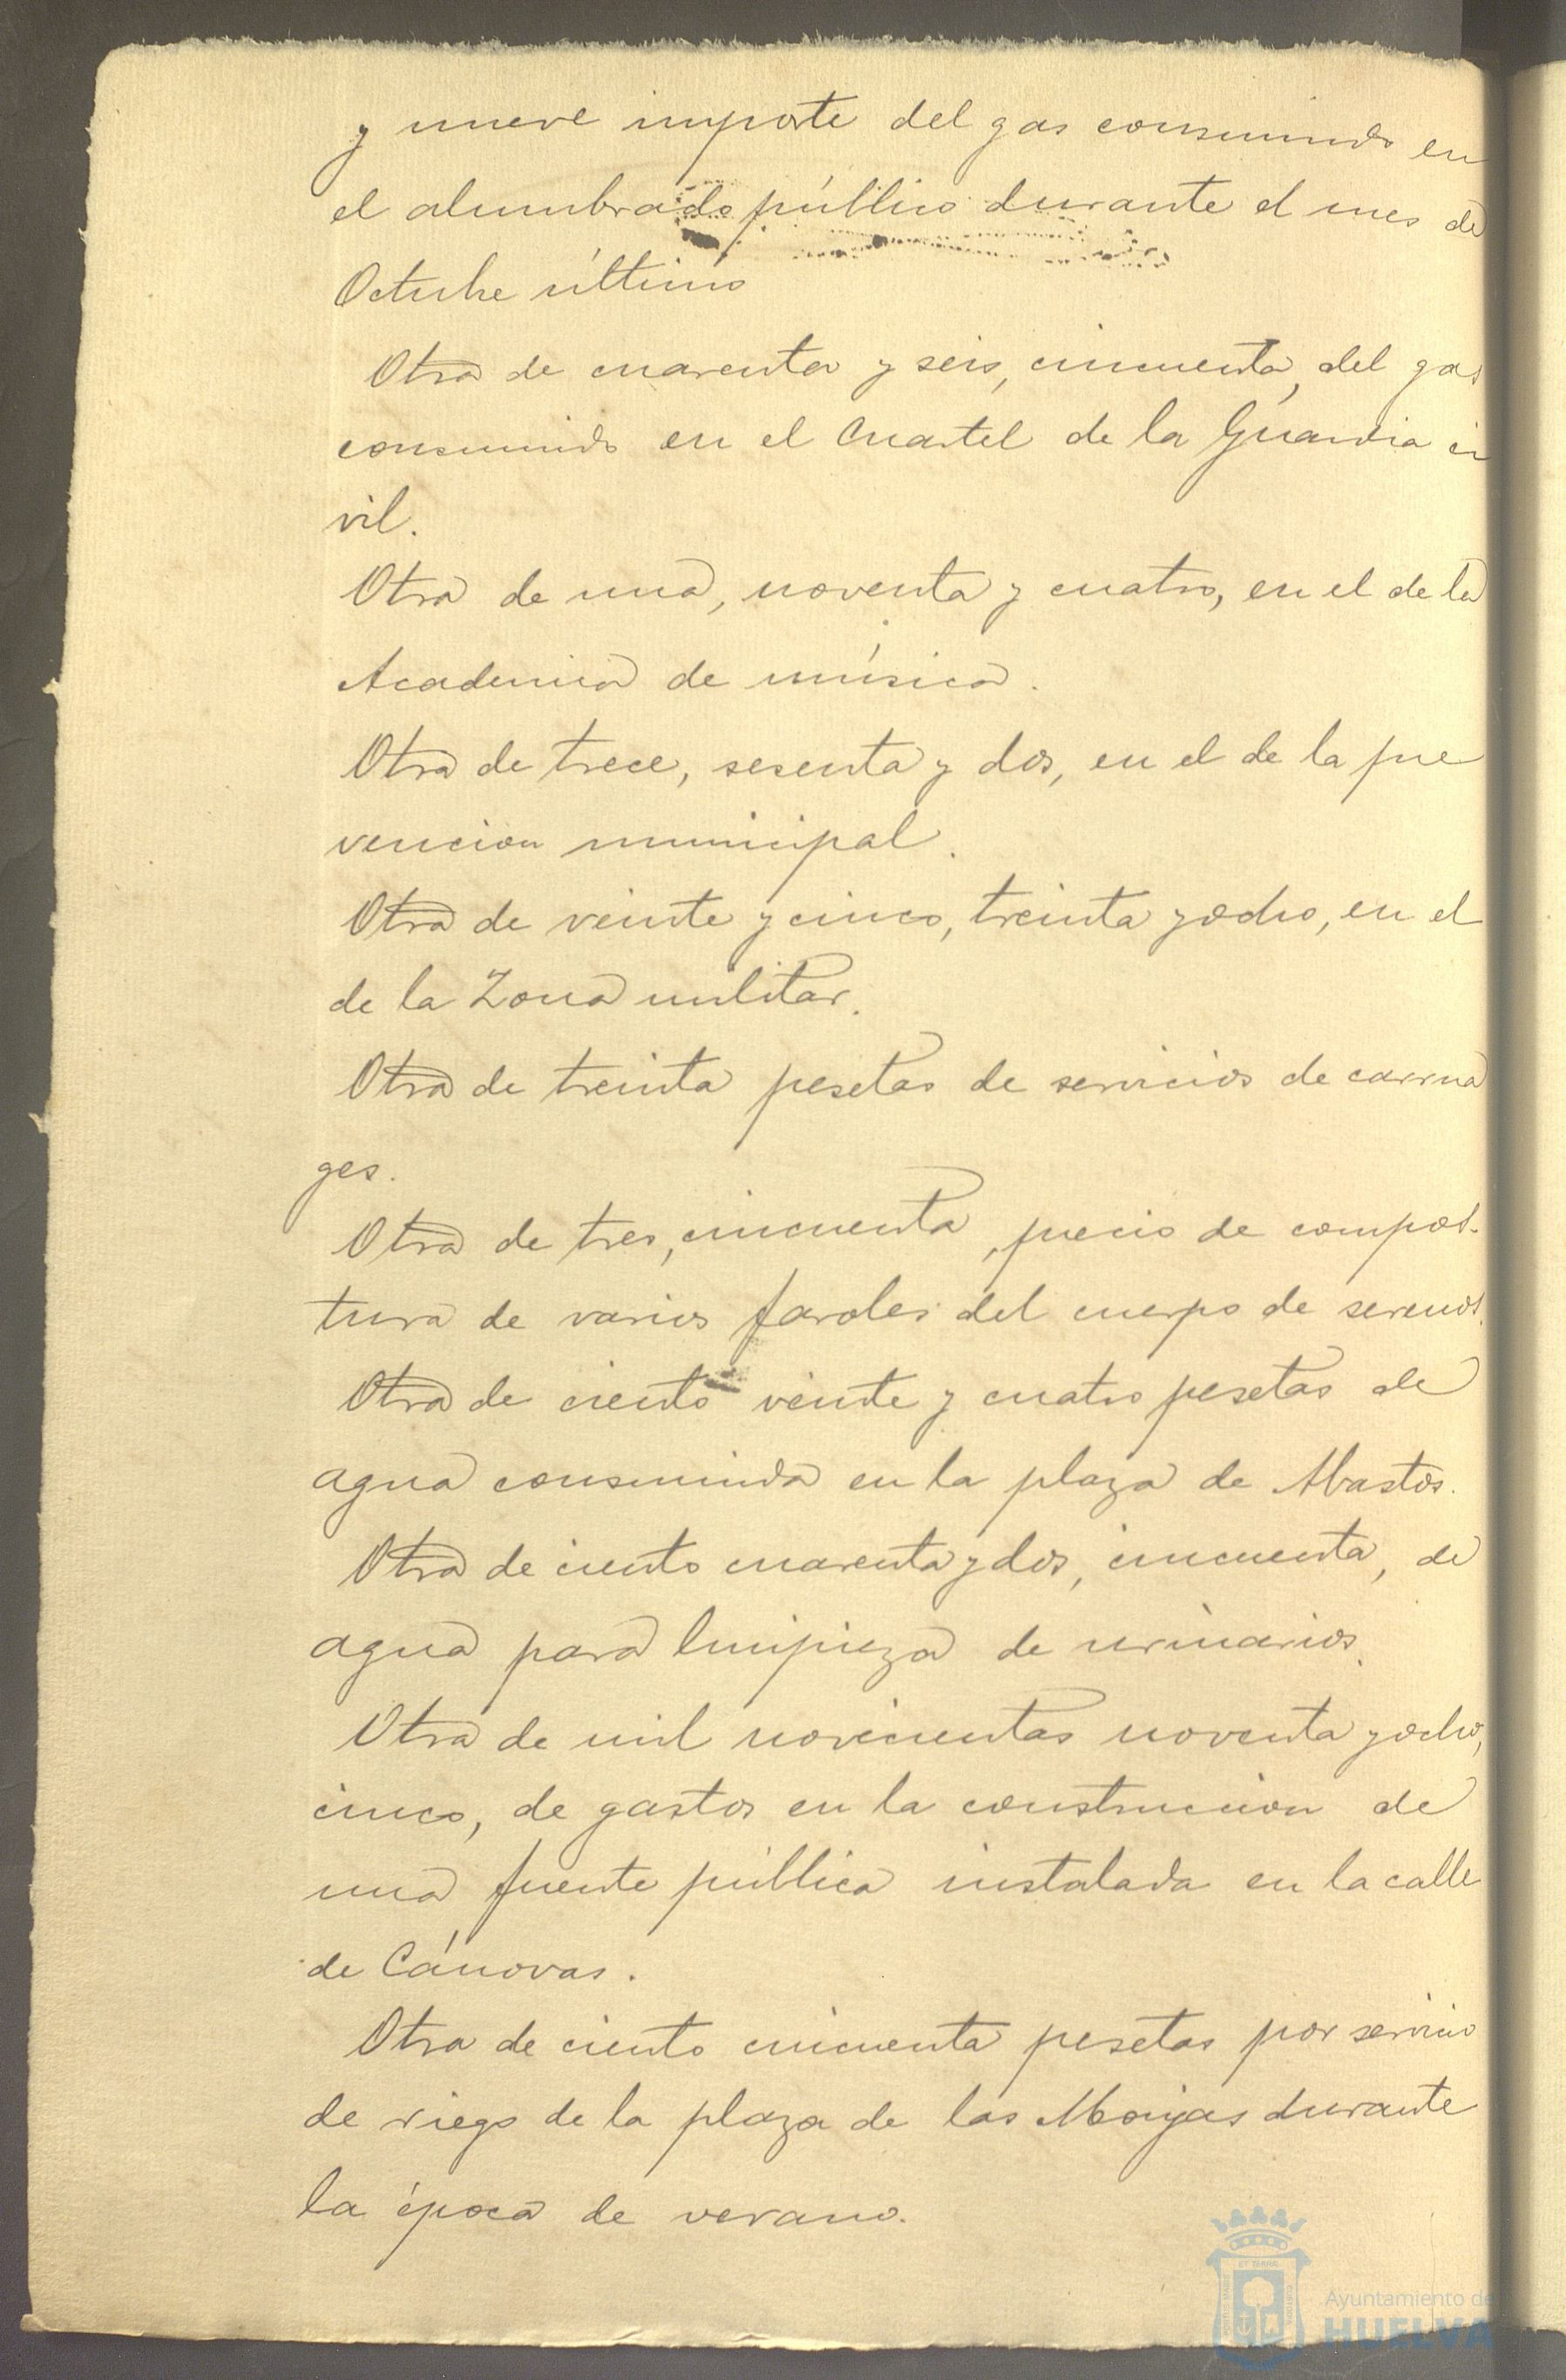 y nueve importe del gas consumido en
el alumbrado público durante el mes de
Octubre último
Otra de cuarenta y seis, cincuenta, del gas
consumido en el Cuartel de la Guardia ci
vil.
Otra de una, noventa y cuatro, en el de la
Academia de música.
Otra de trece, sesenta y dos, en el de la pre
vencion municipal.
Otra de veinte y cinco, treinta y ocho, en el
de la Zona militar.
Otra de treinta pesetas de servicios de carrua
ges.
Otra de tres, cincuenta, precio de compos-
tura de varios faroles del cuerpo de serenos.
Otra de ciento veinte y cuatro pesetas de
agua consumida en la plaza de Abastos.
Otra de ciento cuarenta y dos, cincuenta, de
agua para limpieza de urinarios.
Otra de mil novecientas noventa y ocho,
cinco, de gastos en la construccion de
una fuente pública instalada en la calle
de Cánovas.
Otra de ciento cincuenta pesetas por servicio
de riego de la plaza de las Monjas durante
la época de verano.
Ayuntamiento de
HUELVA